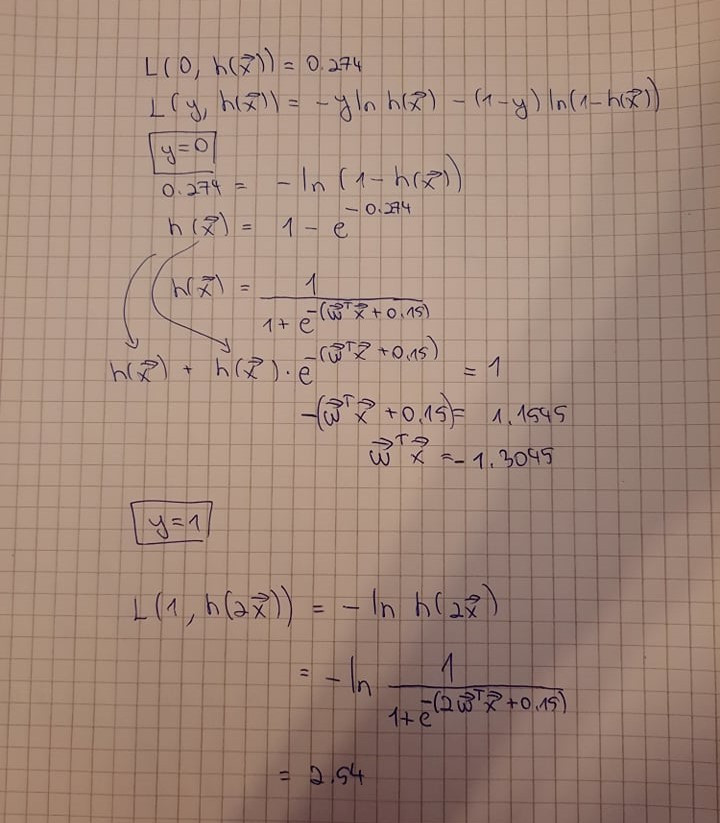 L(0, h(x⃗)) = 0.274
L(y, h(x⃗)) = -y ln h(x⃗) - (1-y) ln(1-h(x⃗))
y=0
0.274 = -ln (1-h(x⃗))
h(x⃗) = 1 - e^{-0.274}
h(x⃗) = \frac{1}{1+e^{-(w⃗^T x⃗ + 0.15)}}
h(x⃗) + h(x⃗) · e^{-(w⃗^T x⃗ + 0.15)} = 1
-(w⃗^T x⃗ + 0.15) = 1.1545
w⃗^T x⃗ = -1.3045
y=1
L(1, h(2x⃗)) = -ln h(2x⃗)
= -ln \frac{1}{1+e^{-(2w⃗^T x⃗ + 0.15)}}
= 2.54